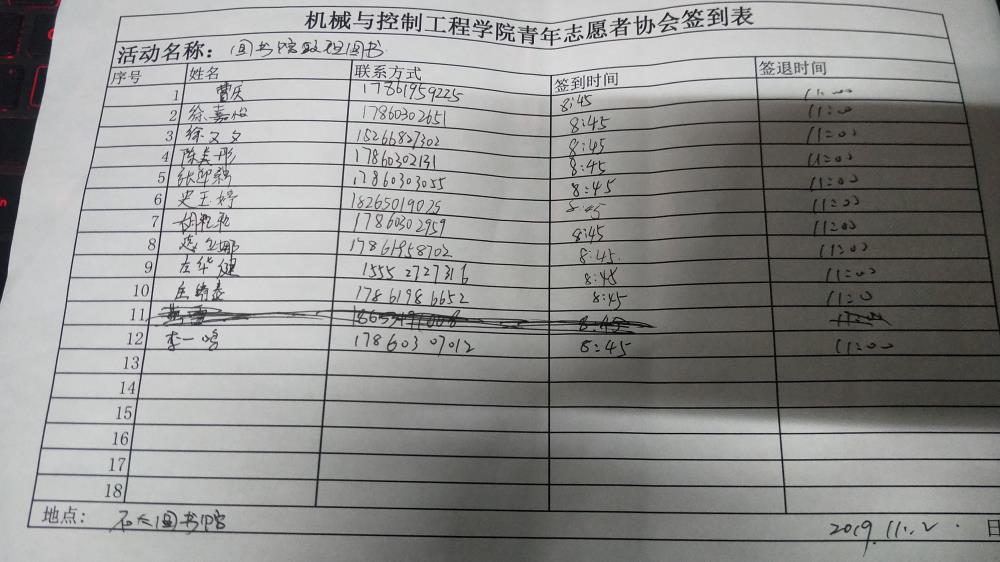 机械与控制工程学院青年志愿者协会签到表
活动名称：图书馆整理图书
序号 姓名 联系方式 签到时间 签退时间
1 曹庆 17861959225 8:45 11:00
2 徐嘉 17860302651 8:45 11:00
3 徐文文 15266827302 8:45 11:00
4 陈美彤 17860302131 8:45 11:00
5 17860303055 8:45 11:00
6 史玉婷 18265019025 8:45 11:00
7 胡 17860302959 8:45 11:00
8 娜 17861958702 8:45 11:00
9 左华健 15552727316 8:45 11:00
10 17861986652 8:45 11:0
11 8:45
12 李一鸣 17860307012 8:45 11:00
13
14
15
16
17
18
地点： 石大图书馆 2019.11.2. 日